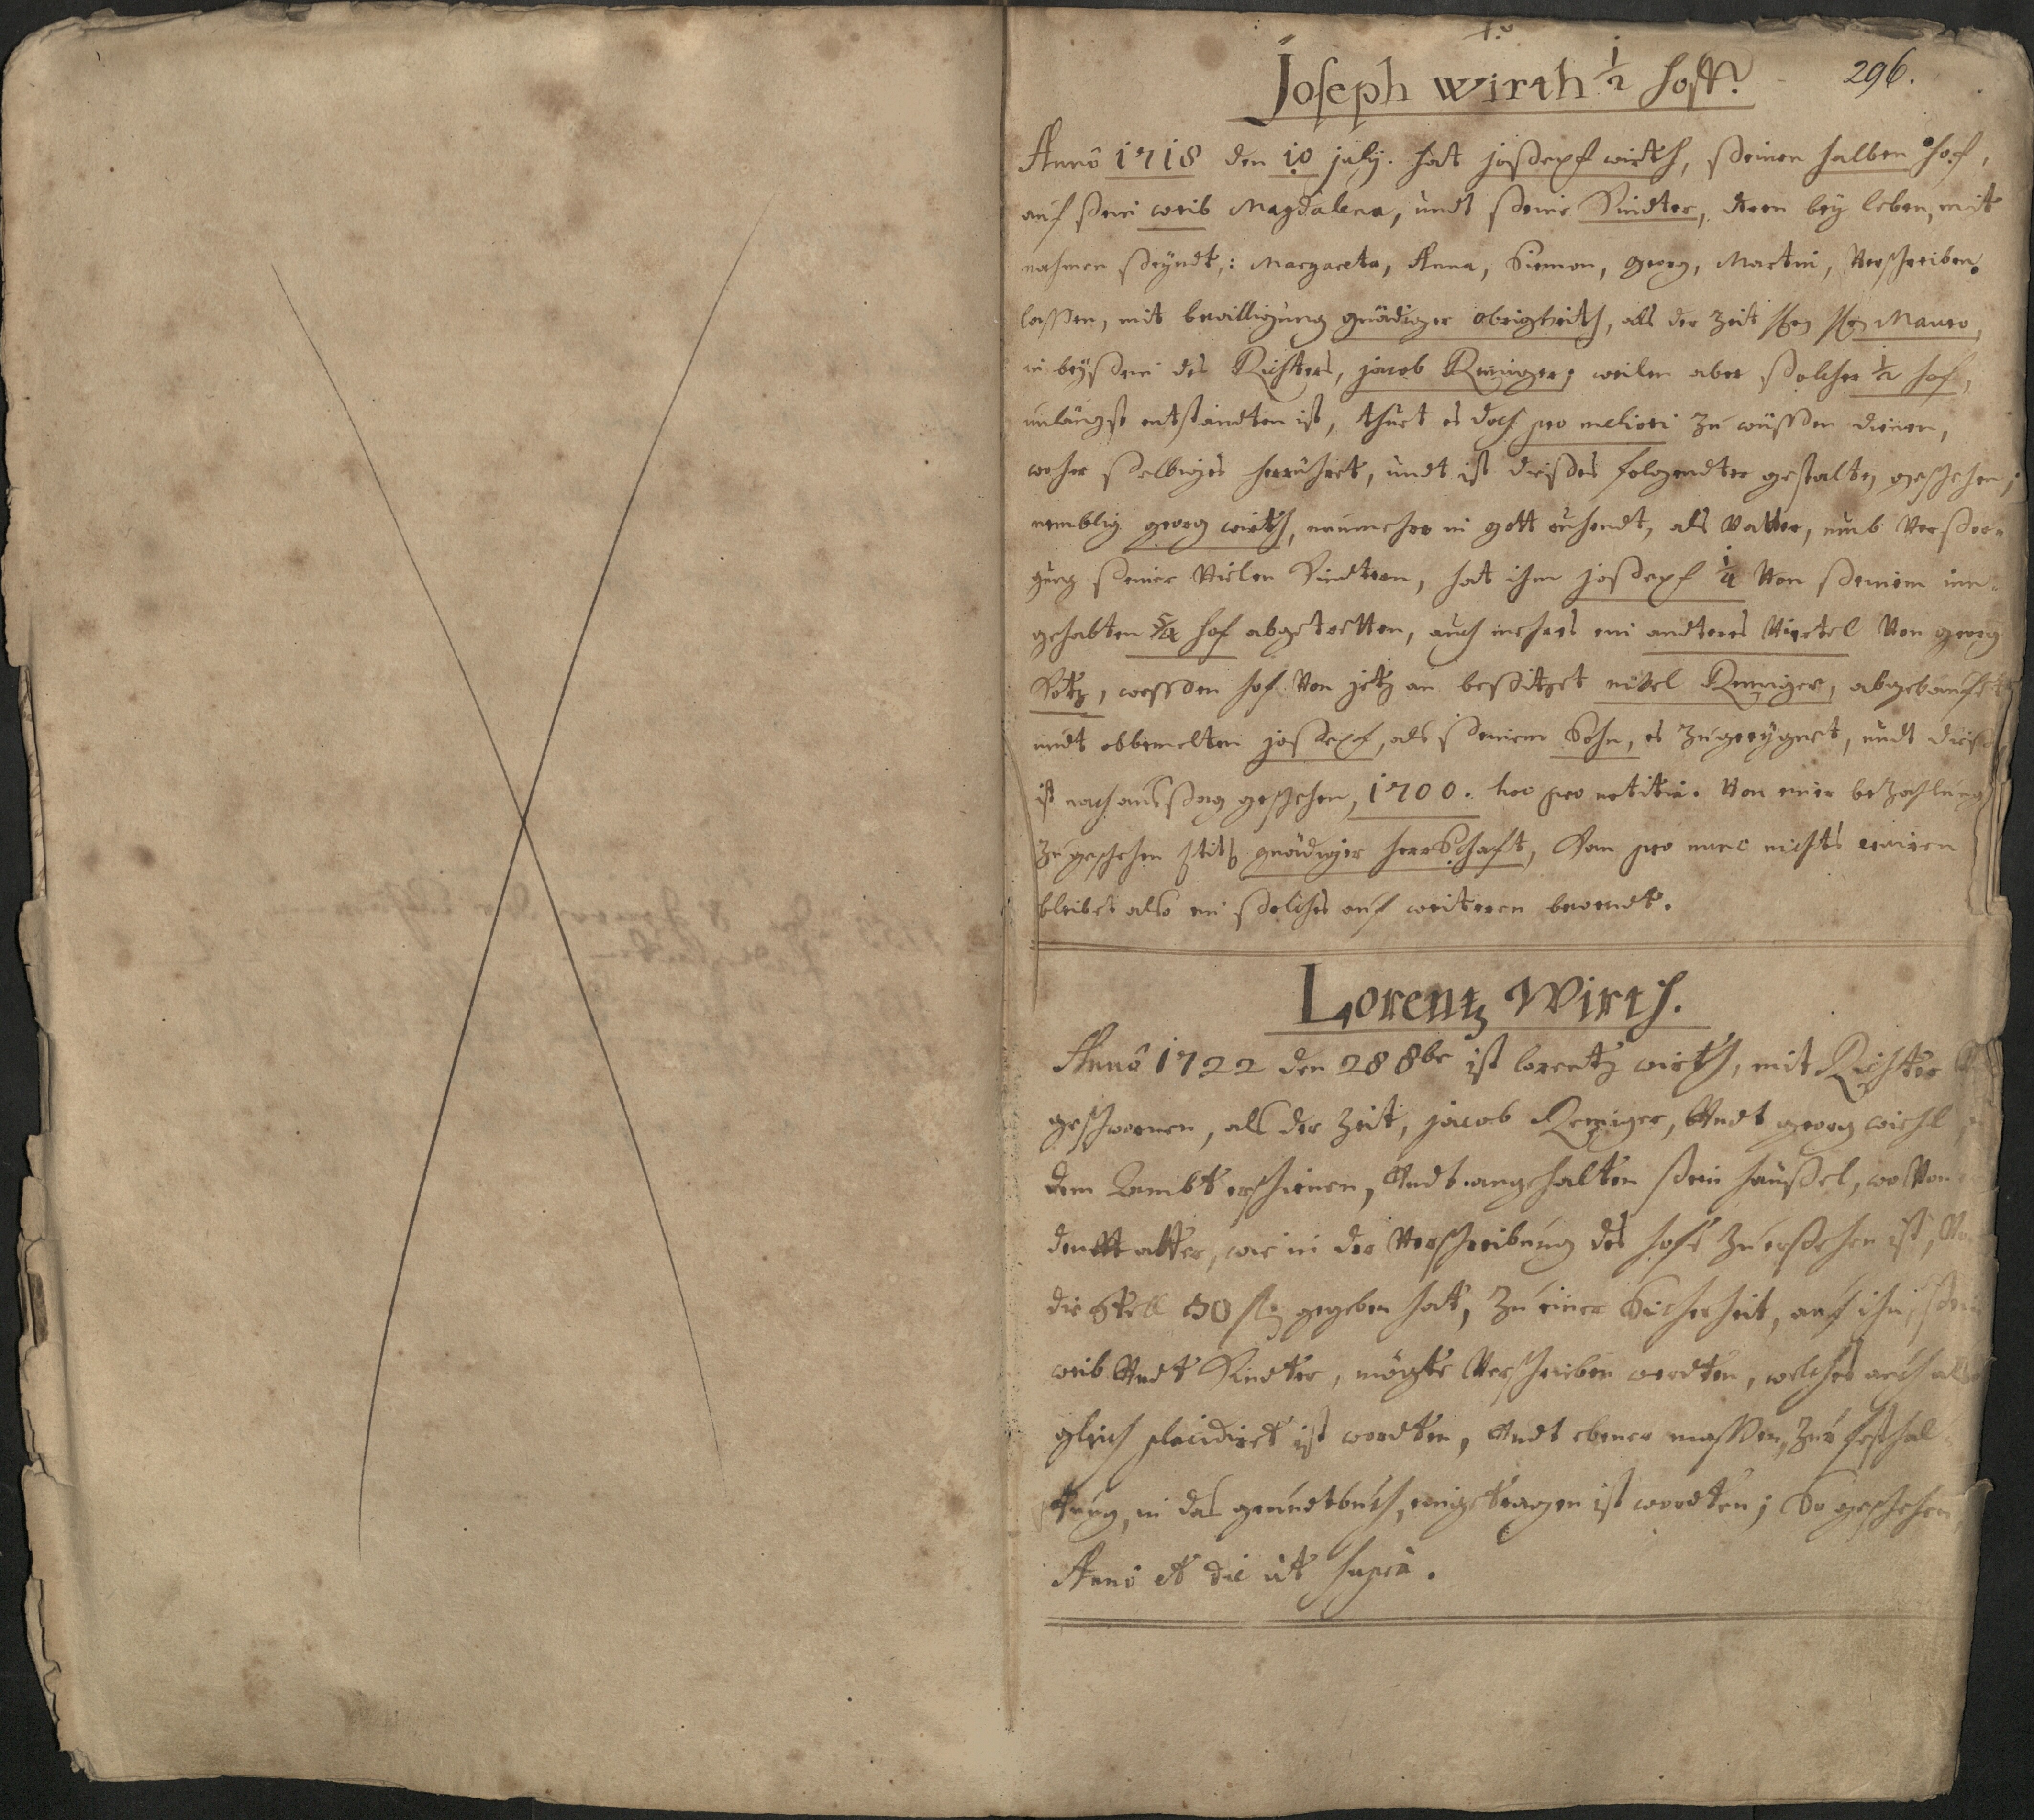 296.
Joseph Wirth ½ hoff.
Anno 1718 den 10 july. hat josseph wirth, sseinen halben hof,
auf ssein weib Magdalena, undt sseine Kindter, deren bey leben, mit
nahmen sseyndt,: Margareta, Anna, Simon, georg, Martin, Verschreiben
lassen, mit bewilligung gnädiger obrigkeith, als der Zeit Mauro,
in beyssein des Richters, jacob Reniger, weilen aber ssolcher ½ hof,
unlängst entstandten ist, thuet es doch pro meliori zu wüssen dienen,
woher sselbiges herrühret, undt ist diesses folgendter gestalten geschehen;
nemblig georg wirth, nunmehro in gott ruhendt, als Vatter, umb Versor-
gung sseiner Vielen Kindtern, hat ihm josseph ¼ Von sseinem inn-
gehabten 5/4 hof abgetretten, auch ein andteres Viertel Von georg
hof Von jetz an bessitzet Reniger, abgekaufet
undt obbemelten josseph, als sseinem Sohn, es zugeeygnet, undt
ist nach aussag geschehen, 1700. hoc pro notitia. Von einer bezahlung
zu geschehen gnädiger herrschaft, kan pro nunc nichts
bleibet also ein ssolches auf weiteren bewendt.
Lorentz Wirth.
Anno 1722 den 28 8br ist lorentz wirth, mit Richter
geschwornen, als der Zeit, jacob Reniger, Undt georg
dem Ambt erschienen, Undt angehalten ssein häussel, wo Von
den Vatter, wie in der Verschreibung des hofs zu erssehen ist,
die Stell 50 fl gegeben hat, zu einer Sicherheit, auf ihn, ssein
weib Undt Kindter, mögte Verschrieben werdten, welches auch
gleich placidiret ist wordten, Undt ebener massen, zur festhal-
tung, in das grundtbuch, eingetragen ist wordten; So geschehen
Anno et die ut supra.